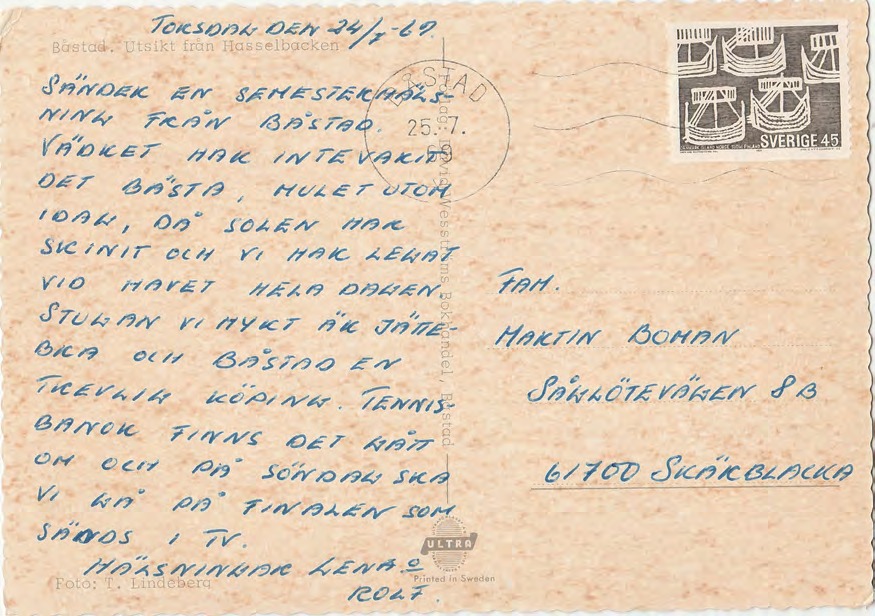 TORSDAG DEN 24/7-69
Båstad. Utsikt från Hasselbacken
SÄNDER EN SEMESTERHÄLS-
NING FRÅN BÅSTAD.
VÄDRET HAR INTE VARIT
DET BÄSTA, MULET UTOM
IDAG, DÅ SOLEN HAR
SKINIT OCH VI HAR LEGAT
VID HAVET HELA DAGEN.
STUGAN VI HYRT ÄR JÄTTE-
BRA OCH BÅSTAD EN
TREVLIG KÖPING. TENNIS-
BANOR FINNS DET GÅTT
OM OCH PÅ SÖNDAG SKA
VI GÅ PÅ FINALEN SOM
SÄNDS I TV.
HÄLSNINGAR LENA O
ROLF.
Foto: T. Lindeberg
BÅSTAD
25.7.
Wesströms Bokhandel, Båstad
ULTRA
Printed in Sweden
SVERIGE 45
FAM.
MARTIN BOMAN
SÅGSLÖTEVÄGEN 8 B
61700 SKÄRBLACKA